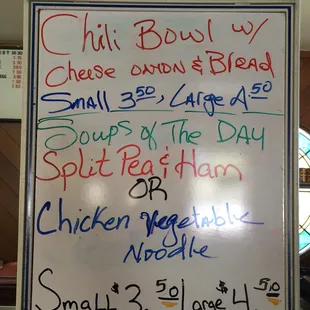 Chili Bowl w/
Cheese onion & Bread
Small 3.50, Large 4.50
Soups of The Day
Split Pea & Ham
OR
Chicken Vegetable
Noodle
Small $3.50 Large $4.50